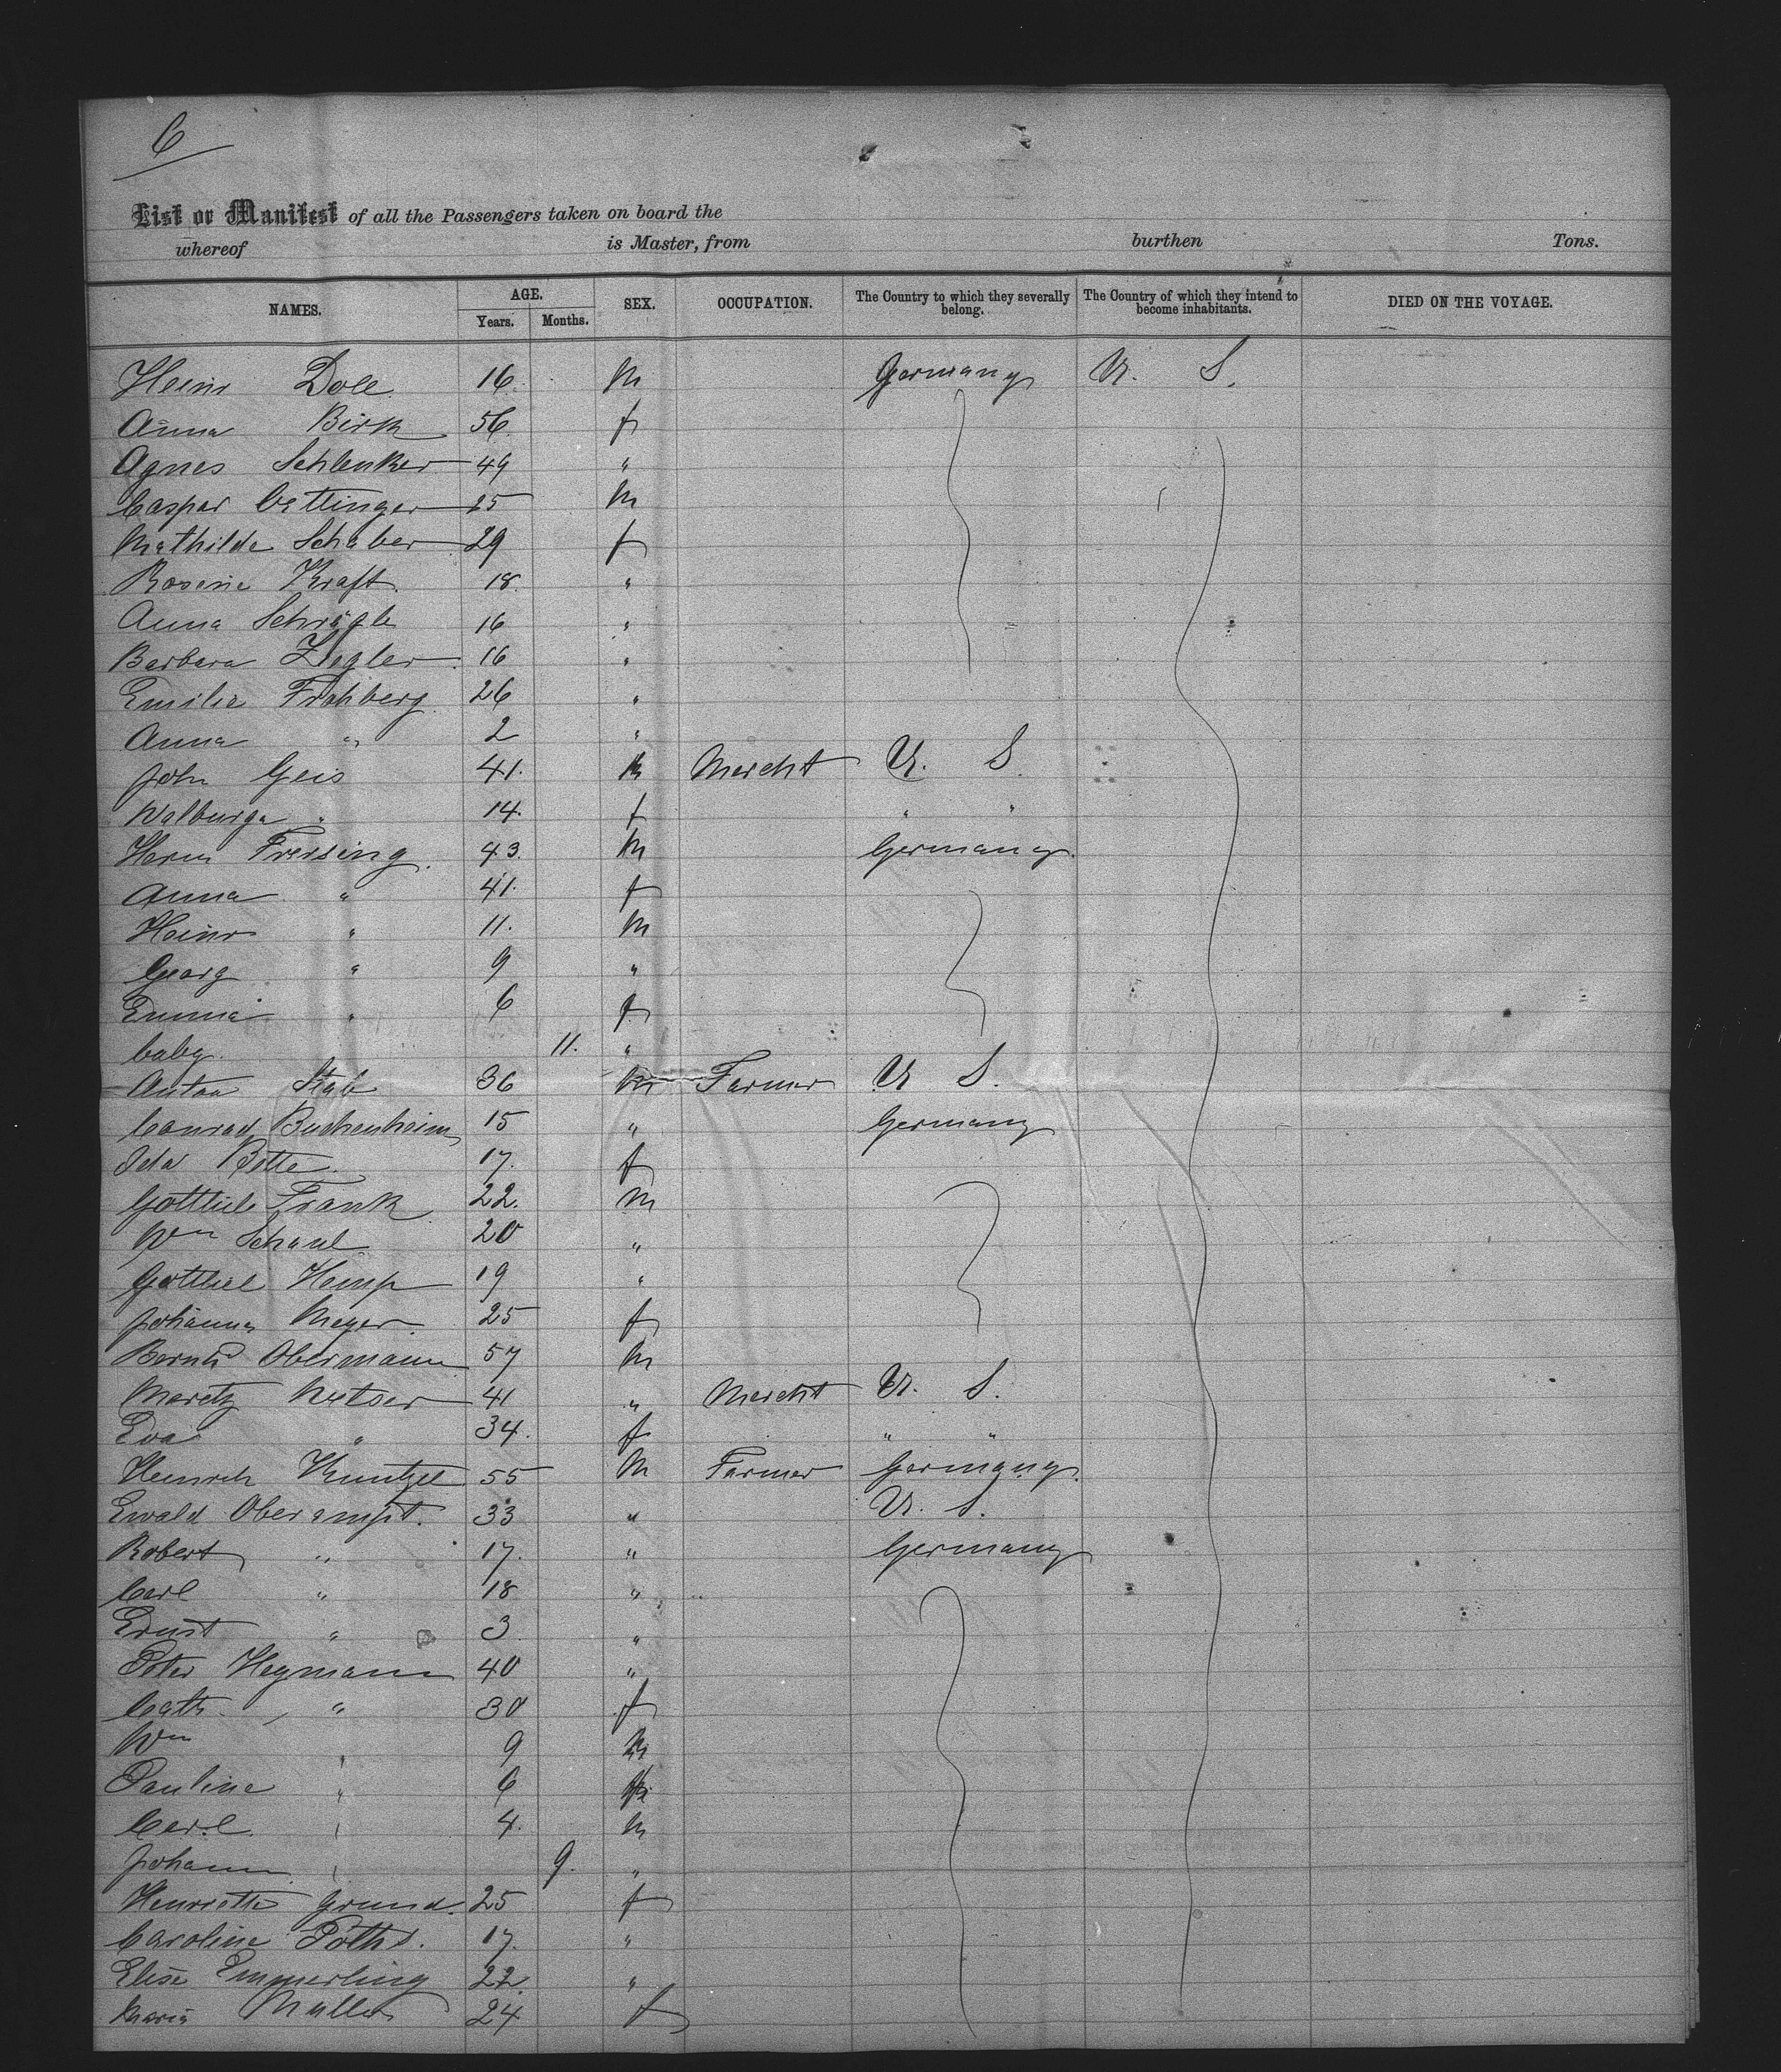 6
List or Manifest of all the Passengers taken on board the
whereof is Master, from burthen Tons.
NAMES. AGE. Years. Months. SEX. OCCUPATION. The Country to which they severally belong. The Country of which they intend to become inhabitants. DIED ON THE VOYAGE.
Heinr Dole 16 m Germany U. S.
Anna Birk 56 f
Agnes Schlenker 49 "
Caspar Oettinger 25 m
Mathilde Schaber 29 f
Rosine Kraft 18 "
Anna Schrägle 16 "
Barbara Ziegler 16 "
Emilie Frohberg 26 "
Anna " 2 "
John Geis 41 m Mercht U. S.
Walburga " 14 f " "
Herm Freising 43 m Germany
Anna " 41 f
Heinr " 11 m
Georg " 9 "
Emma " 6 f
baby 11 "
Anton Stab 36 m Farmer U S.
Conrad Buchenheim 15 " Germany
Ida Botte 17 f
Gottlieb Frank 22 m
Wm Schaul 20 "
Gottlieb Hemp 19 "
Johanna Meyer 25 f
Bernh Obermann 57 m
Moretz 41 " Mercht U. S.
Eva " 34 f " "
Heinrich Kuntzel 55 m Farmer Germany
Ewald Oberampt. 33 " U. S.
Robert " 17 " Germany
Carl " 18 "
Ernst " 3 "
Peter Heymann 40 "
Cath " 30 f
Wm " 9 m
Pauline " 6
Carl " 4 m
Johann 9 "
Henriette Grund 25 f
Caroline Poths. 17 "
Elise Emmerling 22 "
Maria Muller 24 f